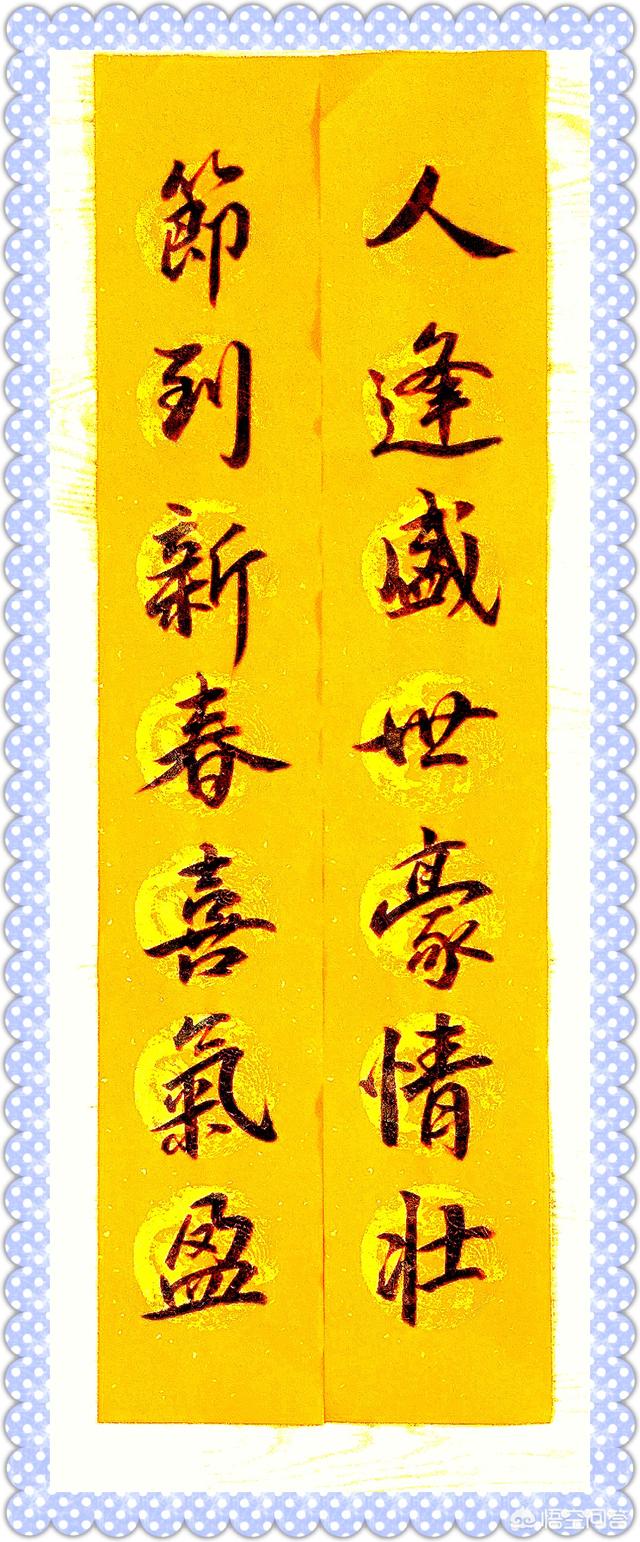 人逢盛世豪情壮
節到新春喜氣盈
悟空问答